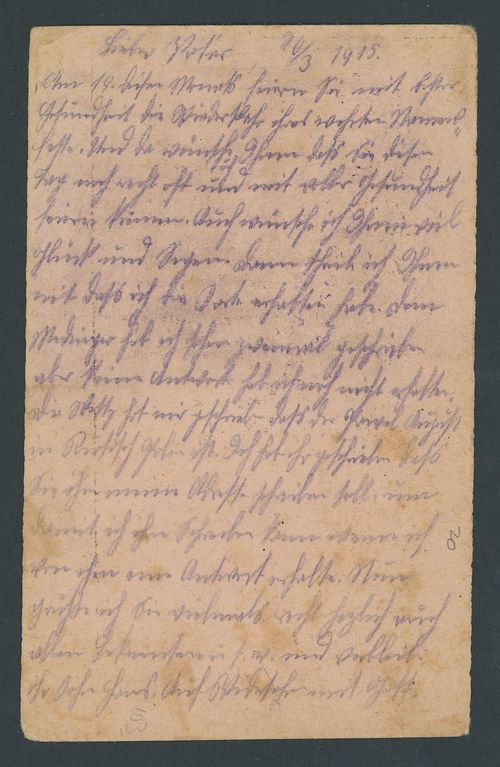 Lieber Vater 8/3 1915.
Am 19. dieses Monats feiern Sie mit bester
Gesundheit die Wiederkehr ihres werten Namens-
feste. Und da wünsche ich Ihnen dass Sie diesen
Tag noch recht oft und mit aller Gesundheit
feiern können. Auch wünsche ich Ihnen viel
Glück und Segen. Dann theile ich Ihnen
mit dass ich die Karte erhalten habe. Dem
hab ich schon zweimal geschrieben
aber keine Antwort hab ich noch nicht erhalten.
Die hat mir geschrieben dass der August
in Russisch Polen ist. Ich hab ihr geschrieben dass
Sie ihm meine Adresse schreiben soll. und
damit ich ihm Schreiben kann wenn ich
von ihm eine Antwort erhalte. Nun
grüße ich Sie vielmals recht herzlich auch
allen Bekannten u. s. w. und verbleibe
ihr Sohn Hans. Auf Wiedersehn mit Gott.
20